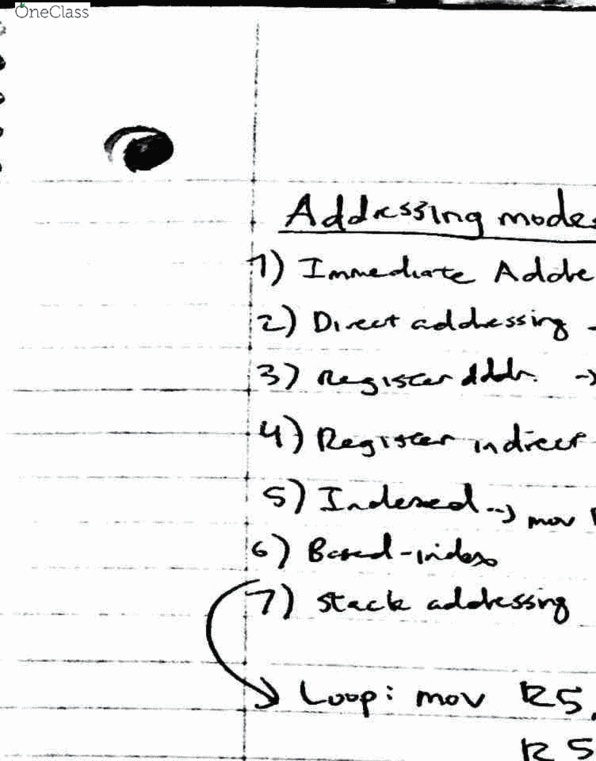 OneClass
Addressing modes
1) Immediate Addre
2) Direct addressing -
3) Register addr. ->
4) Register indirect -
5) Indexed --> mov
6) Based-index
7) stack addressing
Loop: mov R5,
R5